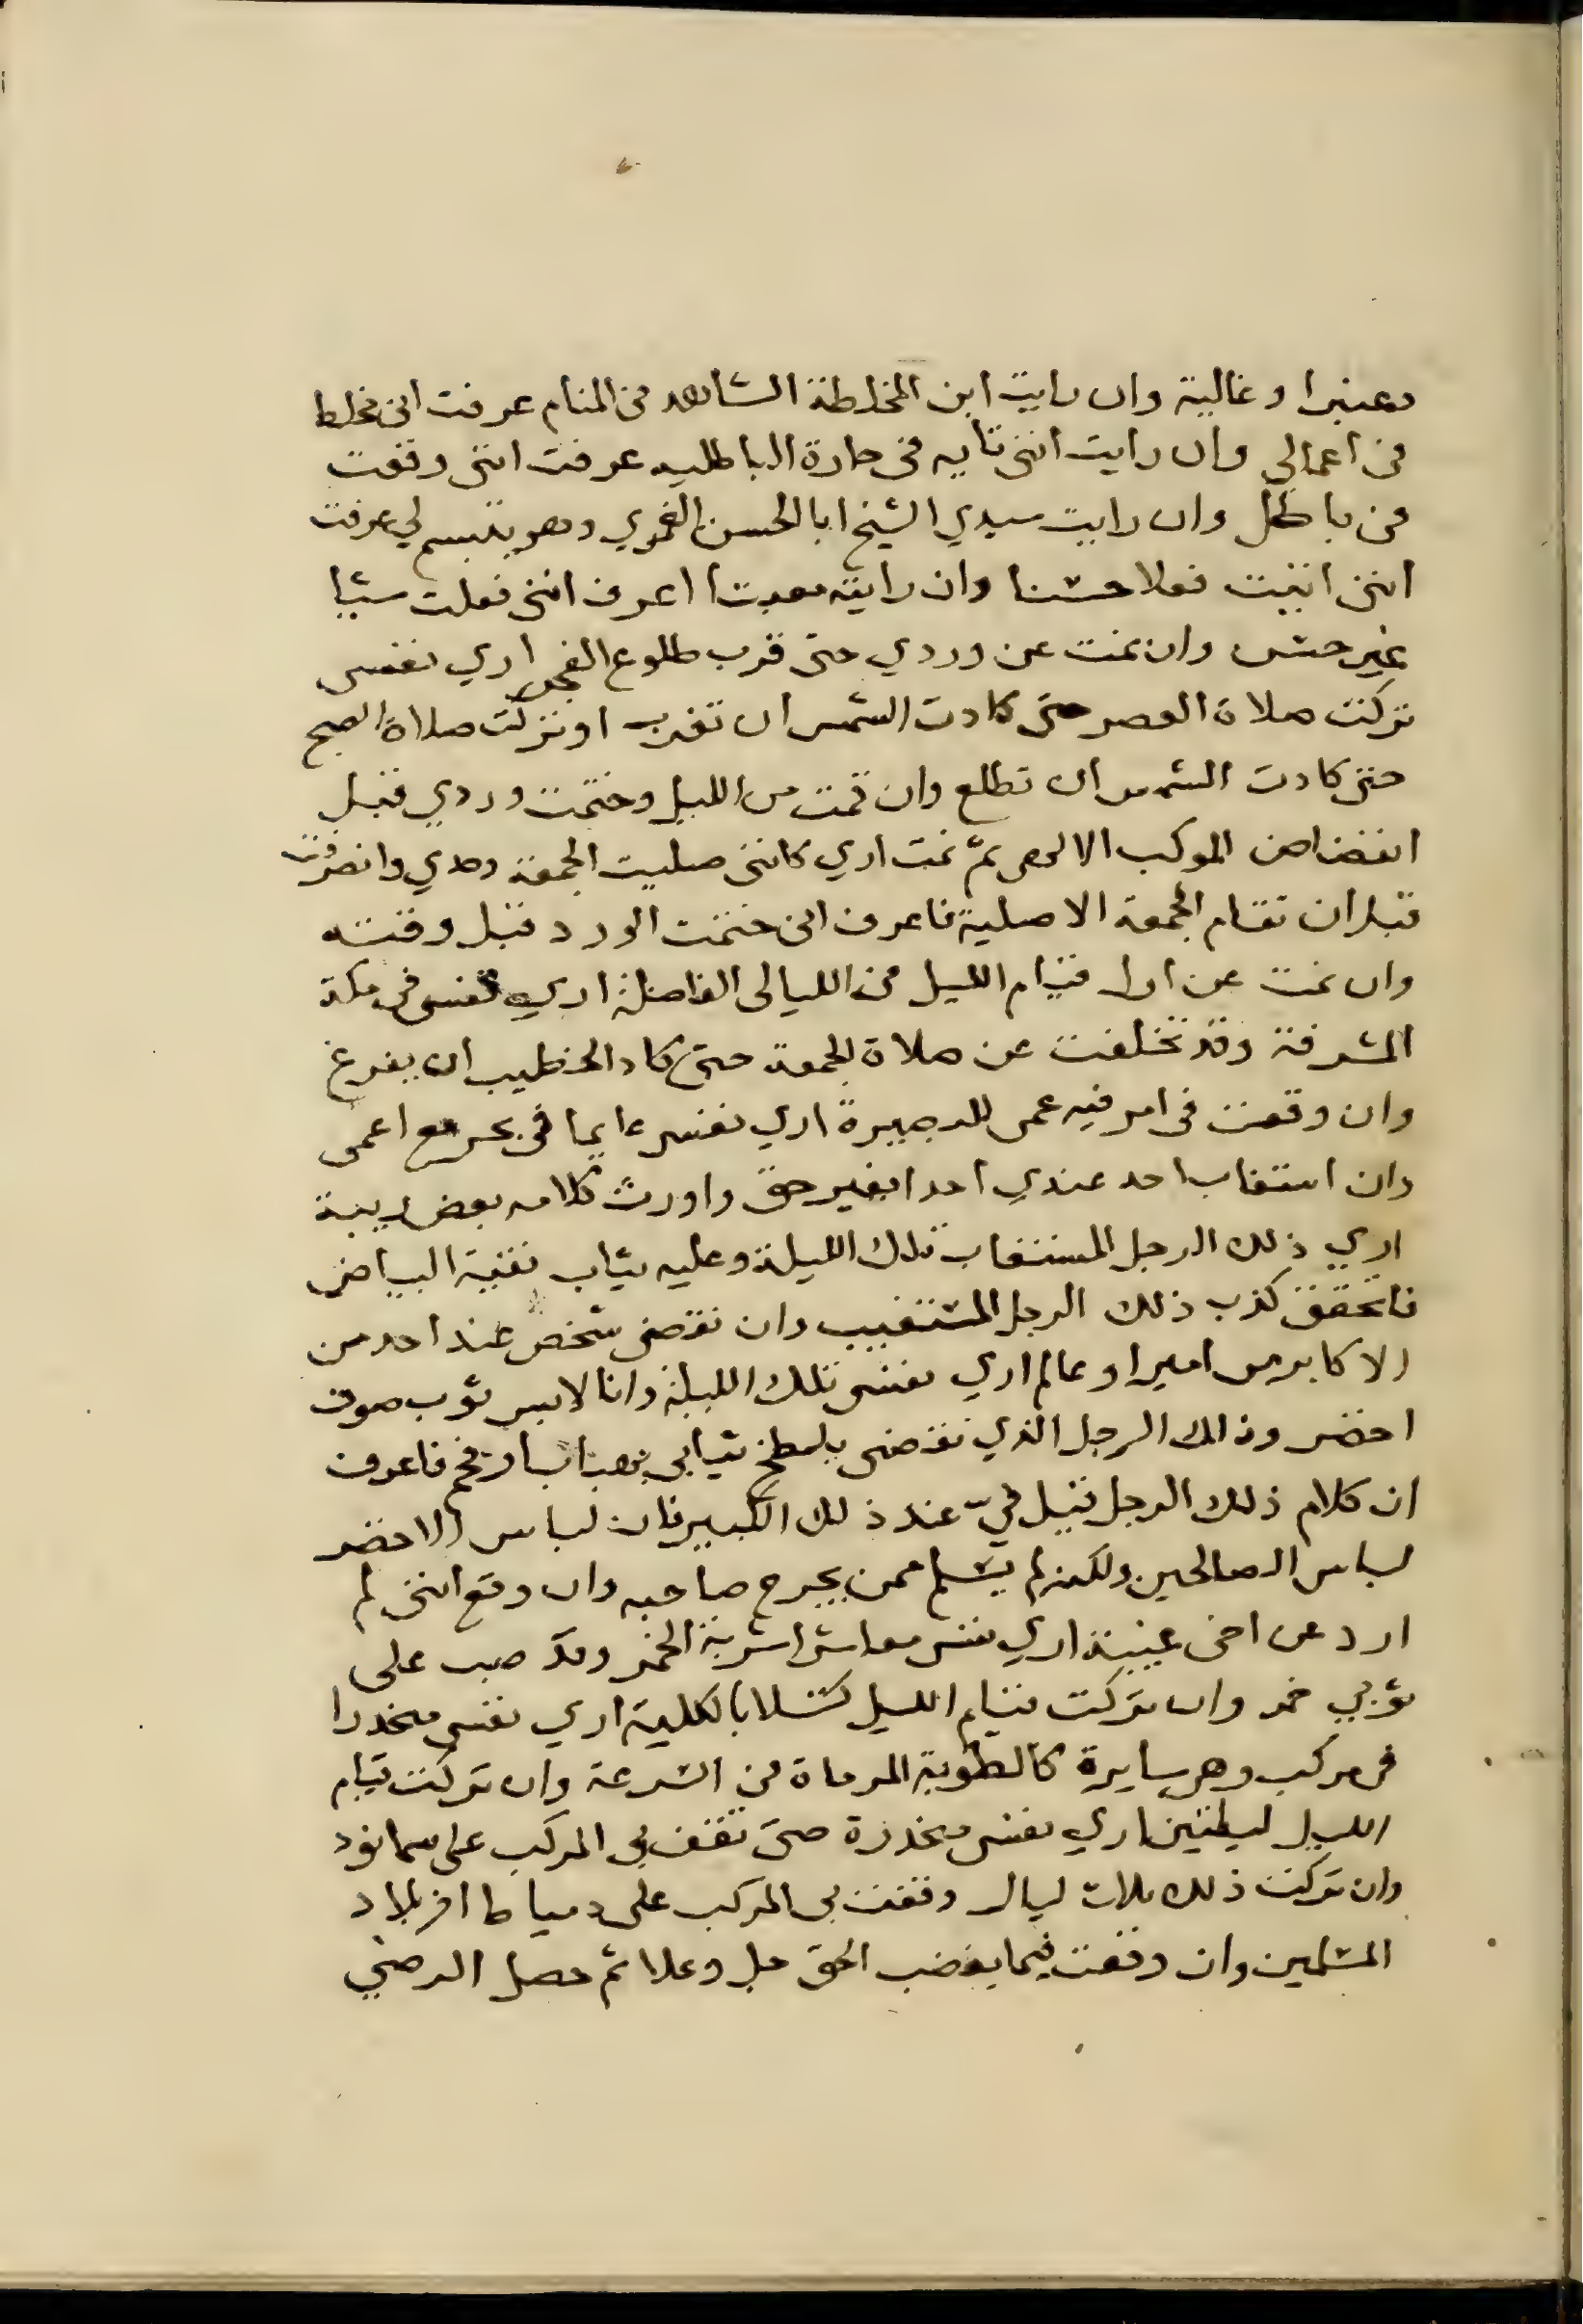 وعنبرا وغالية وان رايت ابن المخلطة الشاهد في المنام عرفت اني مخلط
في اعمالي وان رايت انني تايه في حارة الباطليه عرفت انني وقعت
في باطل وان رايت سيدي الشيخ ابا الحسن الغمري وهو يتبسم لي عرفت
انني اتيت فعلا حسنا وان رايته معبسا اعرف انني فعلت شيا
غير حسن وان نمت عن وردي حتى قرب طلوع الفجر اري نفسي
تركت صلاة العصر حتى كادت الشمس ان تغرب او تركت صلاة الصبح
حتى كادت الشمس ان تطلع وان قمت من الليل وختمت وردي قبل
انفضاض الموكب الالهي ثم نمت اري كانني صليت الجمعة وحدي وانصرفت
قبل ان تقام الجمعة الاصلية فاعرف اني ختمت الورد قبل وقته
وان نمت عن اول قيام الليل في الليالي الفاضلة اري نفسي في مكة
المشرفة وقد تخلفت عن صلاة الجمعة حتى كاد الخطيب ان يفرغ
وان وقعت في امر فيه عمى للبصيرة اري نفسي عايما في بحر مع اعمى
وان استغاب احد عندي احدا بغير حق واورث كلامه بعض ريبة
اري ذلك الرجل المستغاب تلك الليلة وعليه ثياب نقية البياض
فاتحقق كذب ذلك الرجل المستغيب وان نقصني شخص عند احد من
الاكابر من امير او عالم اري نفسي تلك الليلة وانا لابس ثوب صوف
اخضر وذلك الرجل الذي نقصني يلطخ ثيابي بهباب او فحم فاعرف
ان كلام ذلك الرجل قبل فيّ عند ذلك الكبير فان لباس الاخضر
لباس الصالحين ولكن لم يسلم ممن يجرح صاحبه وان وقع انني لم
ارد عن اخي غيبة اري نفسي معاشرا شربة الخمر وقد صب على
ثوبي خمر وان تركت قيام الليل كسلا بالكلية اري نفسي منحدرا
في مركب وهي سايرة كالطوبة المرماة من السرعة وان تركت قيام
الليل ليلتين اري نفسي منحدرة حتى تقف بي المركب على سمانود
وان تركت ذلك ثلاث ليال وقفت بي المركب على دمياط اخر بلاد
المسلمين وان وقعت فيما يغضب الحق جل وعلا ثم حصل الرضي